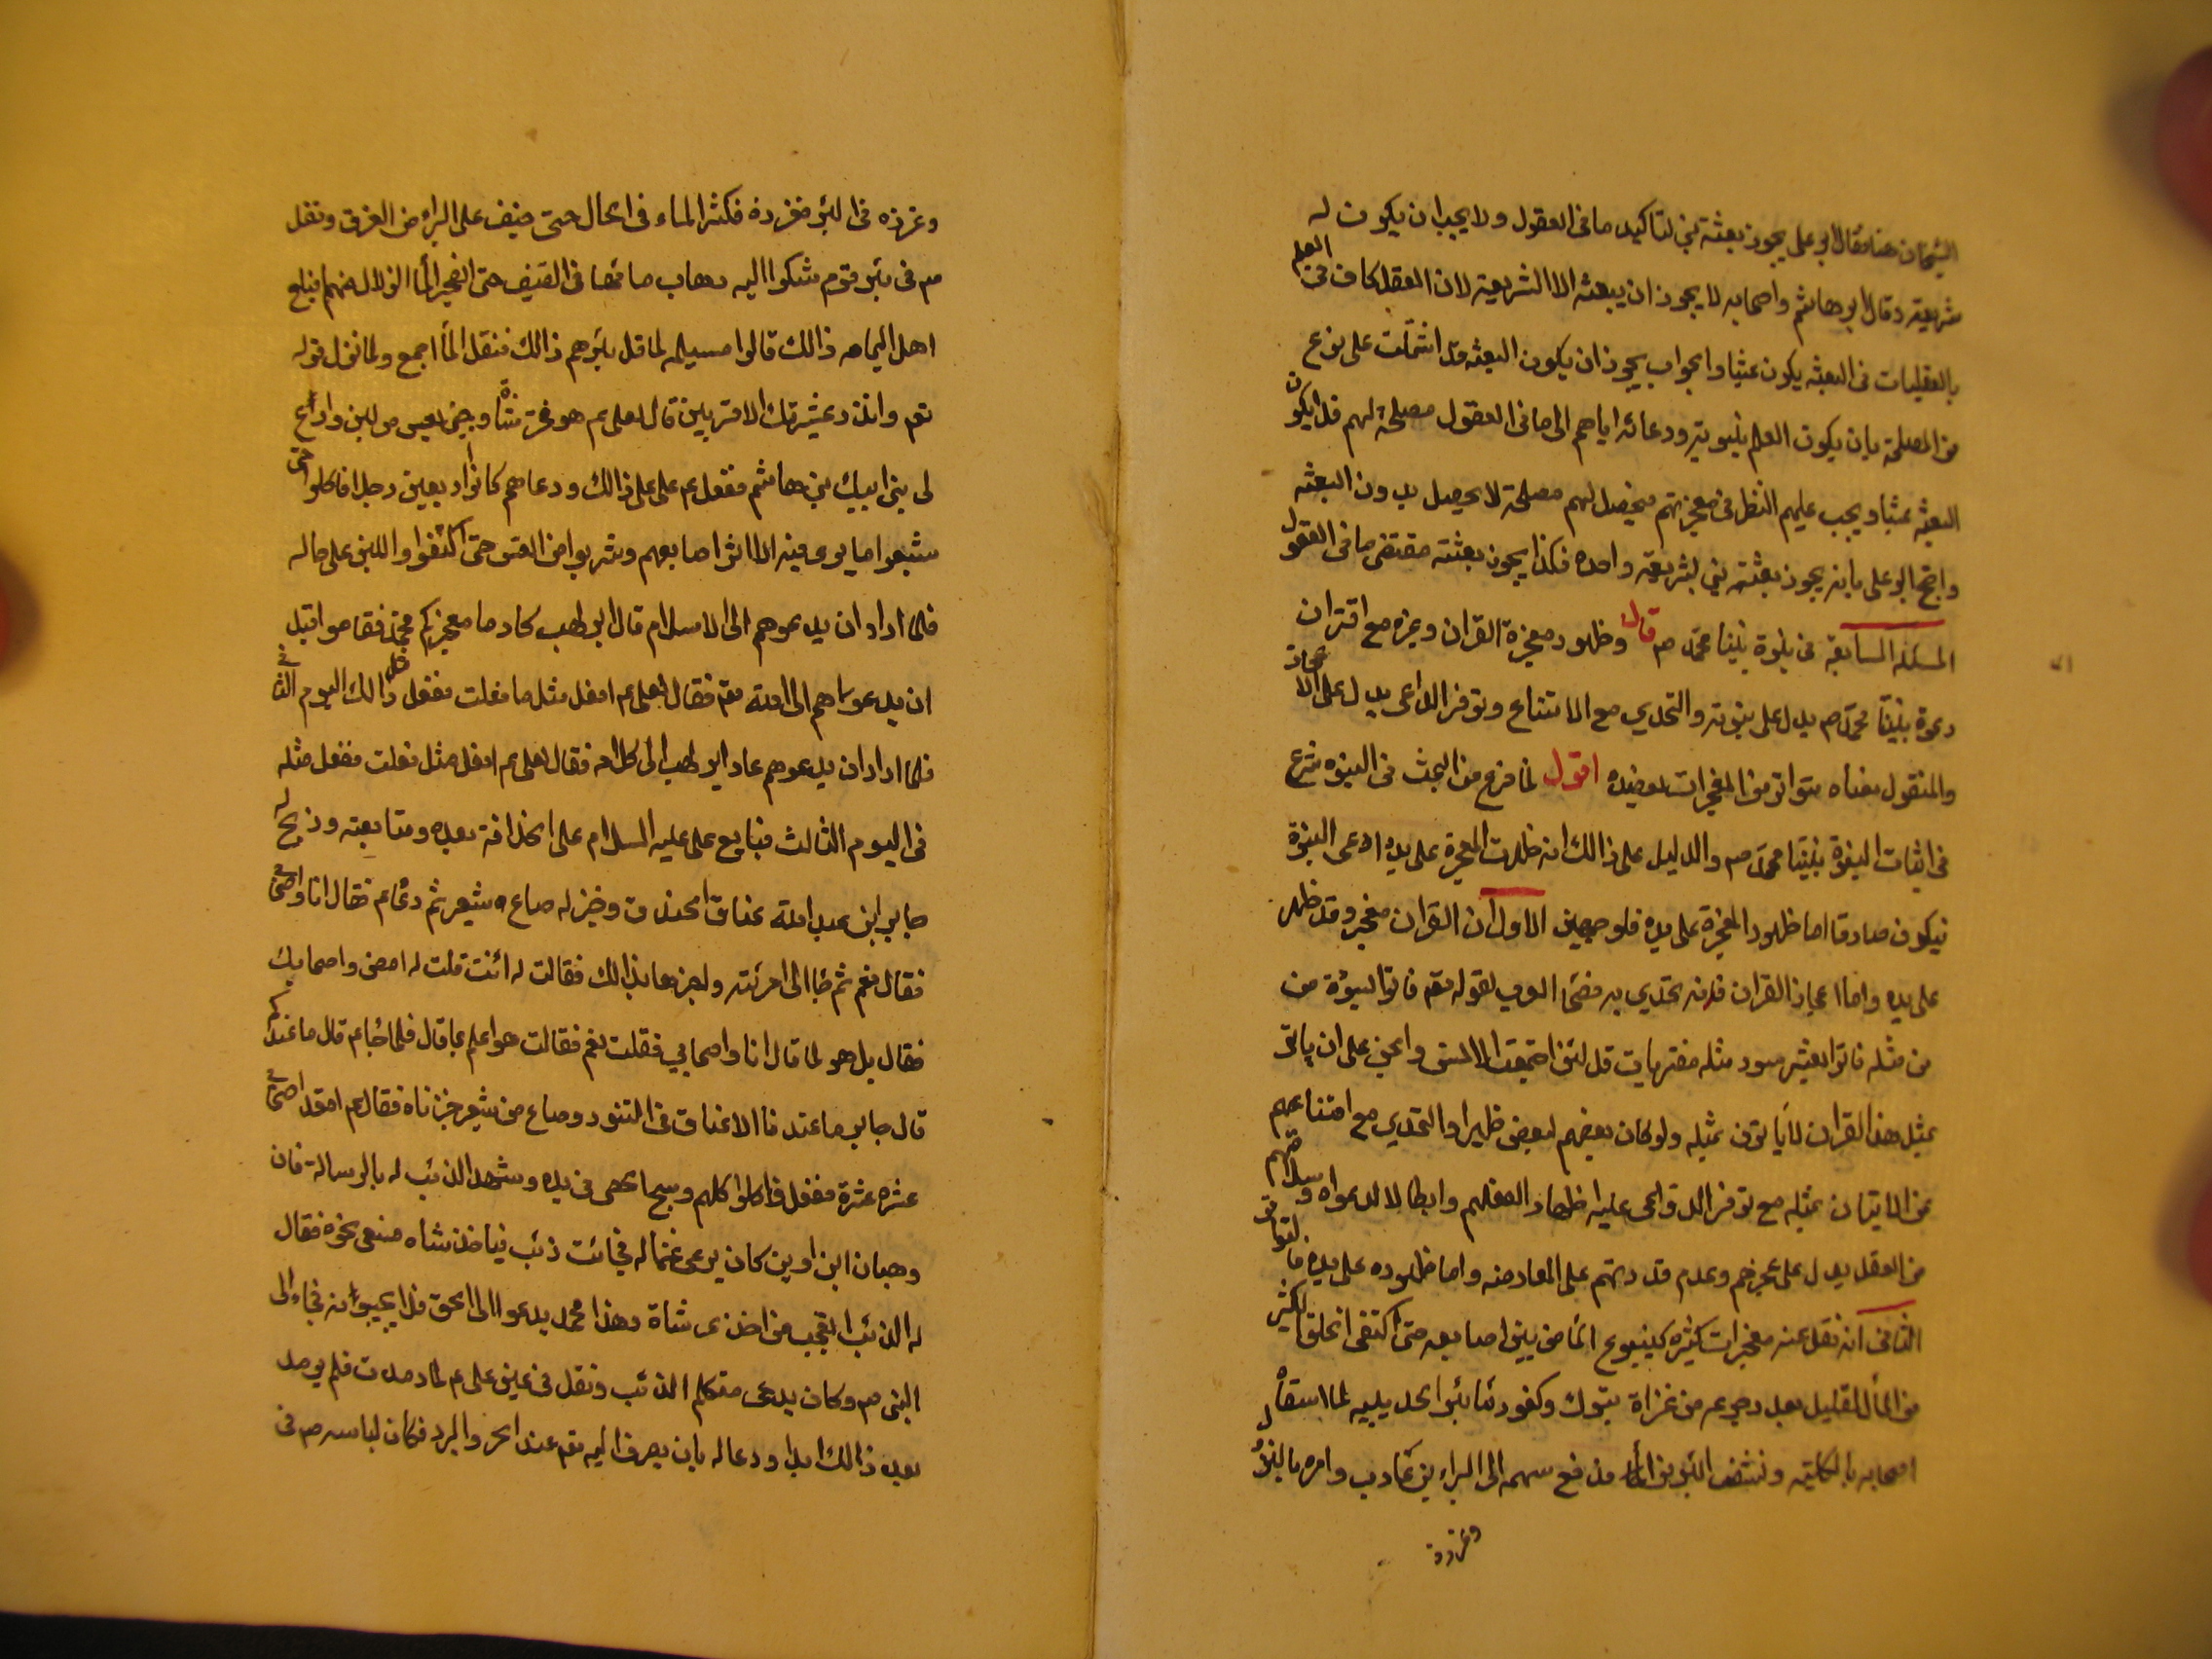 الشيخان هنا فقال ابو على يجوز بعثة نبي لتاكيد ما فى العقول ولا يجب ان يكون له
شريعة وقال ابو هاشم واصحابه لا يجوز ان يبعث الا الشريعة لان العقل كاف فى العلم
بالعقليات فى البعثه يكون عبثا والجواب يجوز ان يكون البعثه قد اشتملت على نوع
من المصلحة بان يكون العلم بنبوته ودعائه اياهم الى ما فى العقول مصلحة لهم فلا يكون
البعثه عبثا ويجب عليهم النظر فى معجزتهم فيحصل لهم مصلحة لا يحصل بدون البعثه
واحتج ابو على بانه يجوز بعثة نبي بشريعة واحده فكذا يجوز بعثته مقتضى ما فى العقول
المسئله السابعة فى نبوة نبينا محمد صم قال وظهور معجزة القران وغيره مع اقتران
دعوة نبينا محمد صم يدل على نبوته والتحدي مع الامتناع وتوفر الداعى يدل على الاعجاز
والمنقول معناه متواتر من المعجزات يعضده اقول لما فرغ من البحث فى النبوه شرع
فى اثبات النبوة نبينا محمد صم والدليل على ذالك انه ظهرت المعجزة على يده ادعى النبوة
فيكون صادقا اما ظهور المعجزة على يده فلوجهين الاول ان القران معجز وقد ظهر
على يده واما اعجاز القران فلانه تحدي به فصحا العرب لقوله تعم فاتوا بسورة من
من مثله فاتوا بعشر سور مثله مفتريات قل لئن اجتمعت الانس والجن على ان ياتو
بمثل هذا القران لا ياتون بمثله ولو كان بعضهم لبعض ظهيرا والتحدي مع امتناعهم
عن الاتيان بمثله مع توفر الدواعى عليه اظهار الفضلهم وابطالا لدعواه وسلامتهم
من القتل يدل على عجزهم وعدم قدرتهم على المعارضه واما ظهوره على يده فبالتواتر
الثانى انه نقل عنه معجزات كثيره كينبوع الما من بين اصابعه حتى اكتفى الخلق الكثير
من الما القليل بعد رجوعه من غزاة تبوك وكغور ماء بئر الحديبيه لما استقاه
اصحابه بالكلية ونشف البئر من الما فدفع سهمه الى البراء بن عازب وامره بالنزول
وغرزه
وغرزه فى البئر فغرزه فكثر الماء فى الحال حتى خيف على البراء من الغرق ونقل
صم فى بئر قوم شكوا اليه ذهاب مائها فى الصيف حتى انفجر الما الزلال منهم فبلغ
اهل اليمامه ذالك قالوا مسيلمه لما قل بئرهم ذالك فتفل الما اجمع ولما نزل قوله
تعم وانذر عشيرتك الاقربين قال لعلى عم هو فخذ شاة وجئنى بعس من لبن وادع
لى بنى ابيك بنى هاشم ففعل عم على على ذالك ودعاهم كانوا اربعين رجلا فاكلوا حتى
شبعوا ما يرى فيه الا اثر اصابعهم وشربوا من العس حتى اكتفوا واللبن على حاله
فلما اراد ان يدعوهم الى الاسلام قال ابو لهب كاد ما معجزكم محمد فقاموا قبل
ان يدعواهم الى الله تعم فقال لعلى عم افعل مثل ما فعلت ففعل مثل ذالك اليوم الثانى
فلما اراد ان يدعوهم عاد ابو لهب الى كلامه فقال لعلى عم افعل مثل فعلت ففعل مثله
فى اليوم الثالث فبايع على عليه السلام على الخلافة بعده ومتابعته وذبح له
جابر ابن عبد الله عناقا الخندق وخبز له صاع شعير ثم دعاه عم فقال انا واصحابى
فقال نعم ثم جا الى امرئته واخبرها بذالك فقالت له ائنت قلت له امض واصحابك
فقال بل هو لما قال انا واصحابي فقلت نعم فقالت هو اعلم بما قال فلما جاء عم قال ما عندكم
قال جابر ما عندنا الا عناق فى التنور وصاع من شعير خبزناه فقال عم اقعد اصحابى
عشره عشرة ففعل فاكلوا كلهم وسبح الحصى فى يده وشهد الذئب له بالرسالة فان
وهبان ابن اوس كان يرعى غنما له فجائت ذئب فياخذ شاه فسعى نحوه فقال
له الذئب اتعجب من اخذى شاة وهذا محمد يدعوا الى الحق فلا يجيبونه فجاء الى
النبى صم وكان يدعى مكلم الذئب وتفل فى عين على عم لما رمدت فلم يرمد
بعد ذالك ابدا ودعا له بان يصرف اليه تعم عند الحر والبرد فكان لباسه صم فى